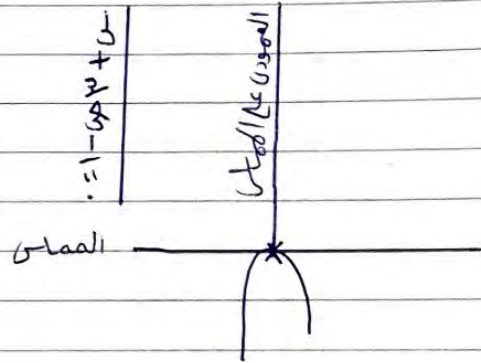 س + ٣ص - ١ = ٠
العمودي على المماس
المماس